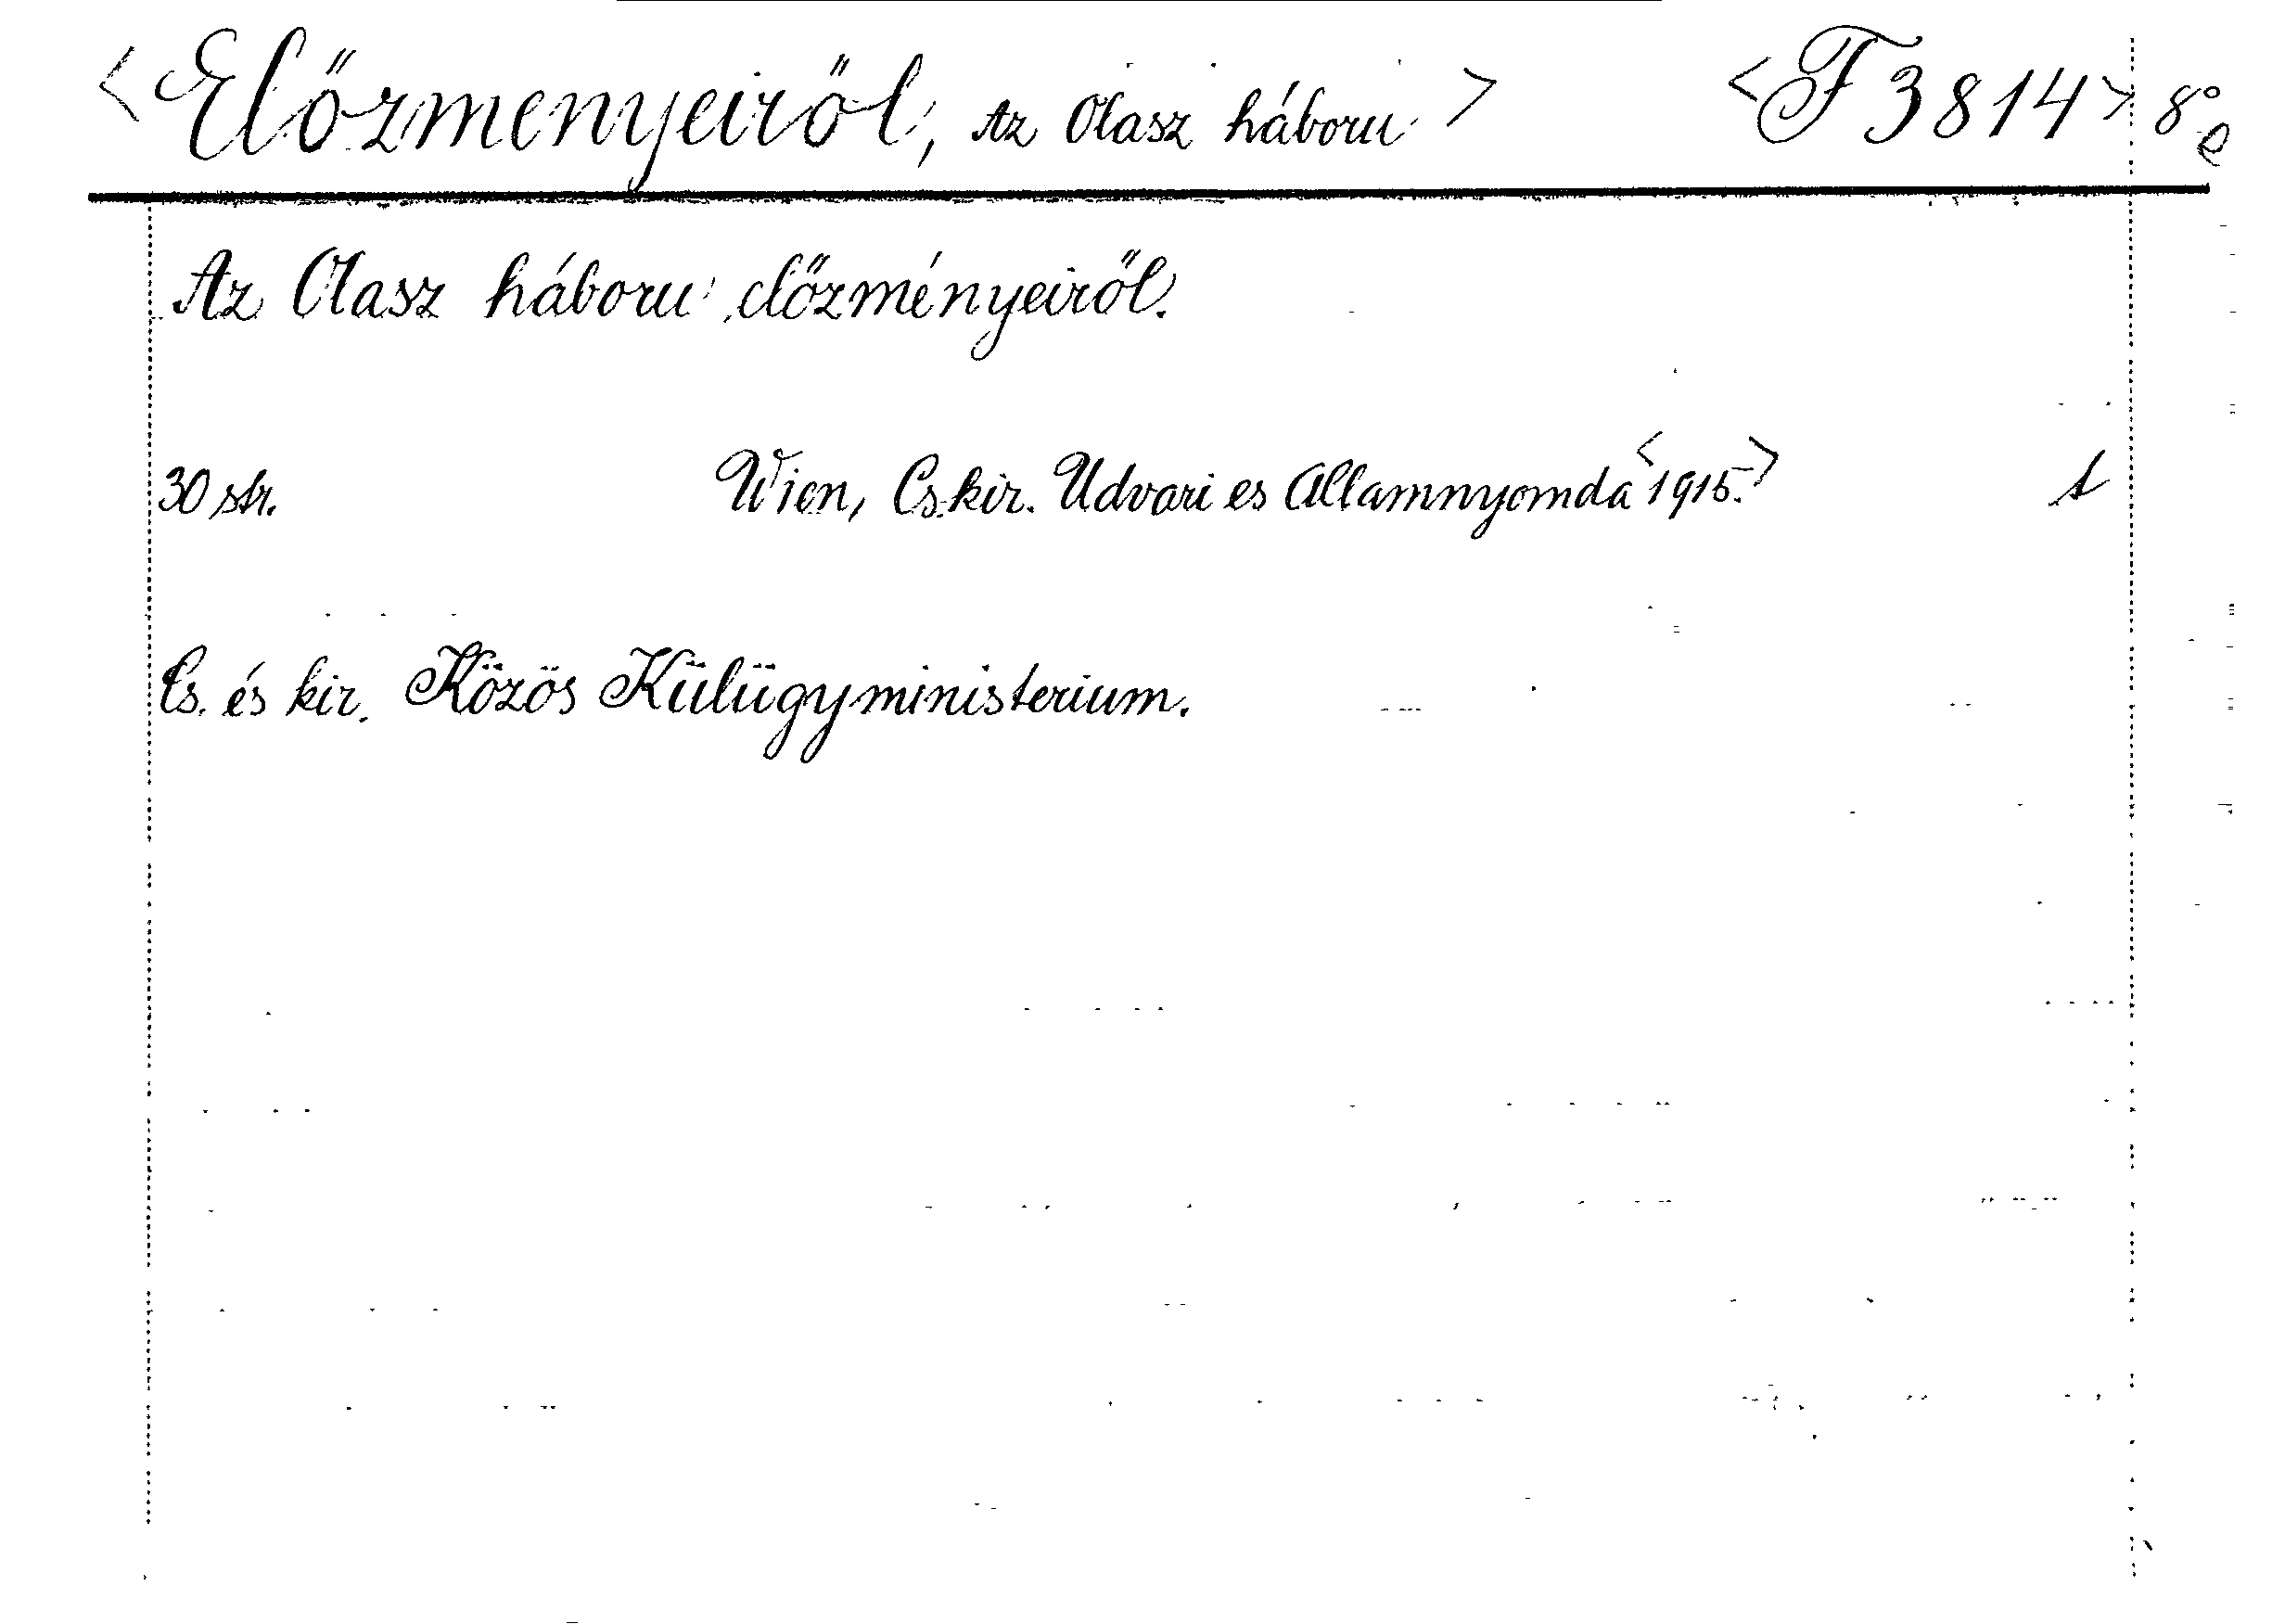 <Előzmenyeiről, Az Olasz háboru> <F 3814> 8° e
Az Olasz háboru előzményeiről.
30 str. Wien, Cs. kir. Udvari es Allamnyomda <1915.> 1
Cs. és kir. Közös Külügyministerium.